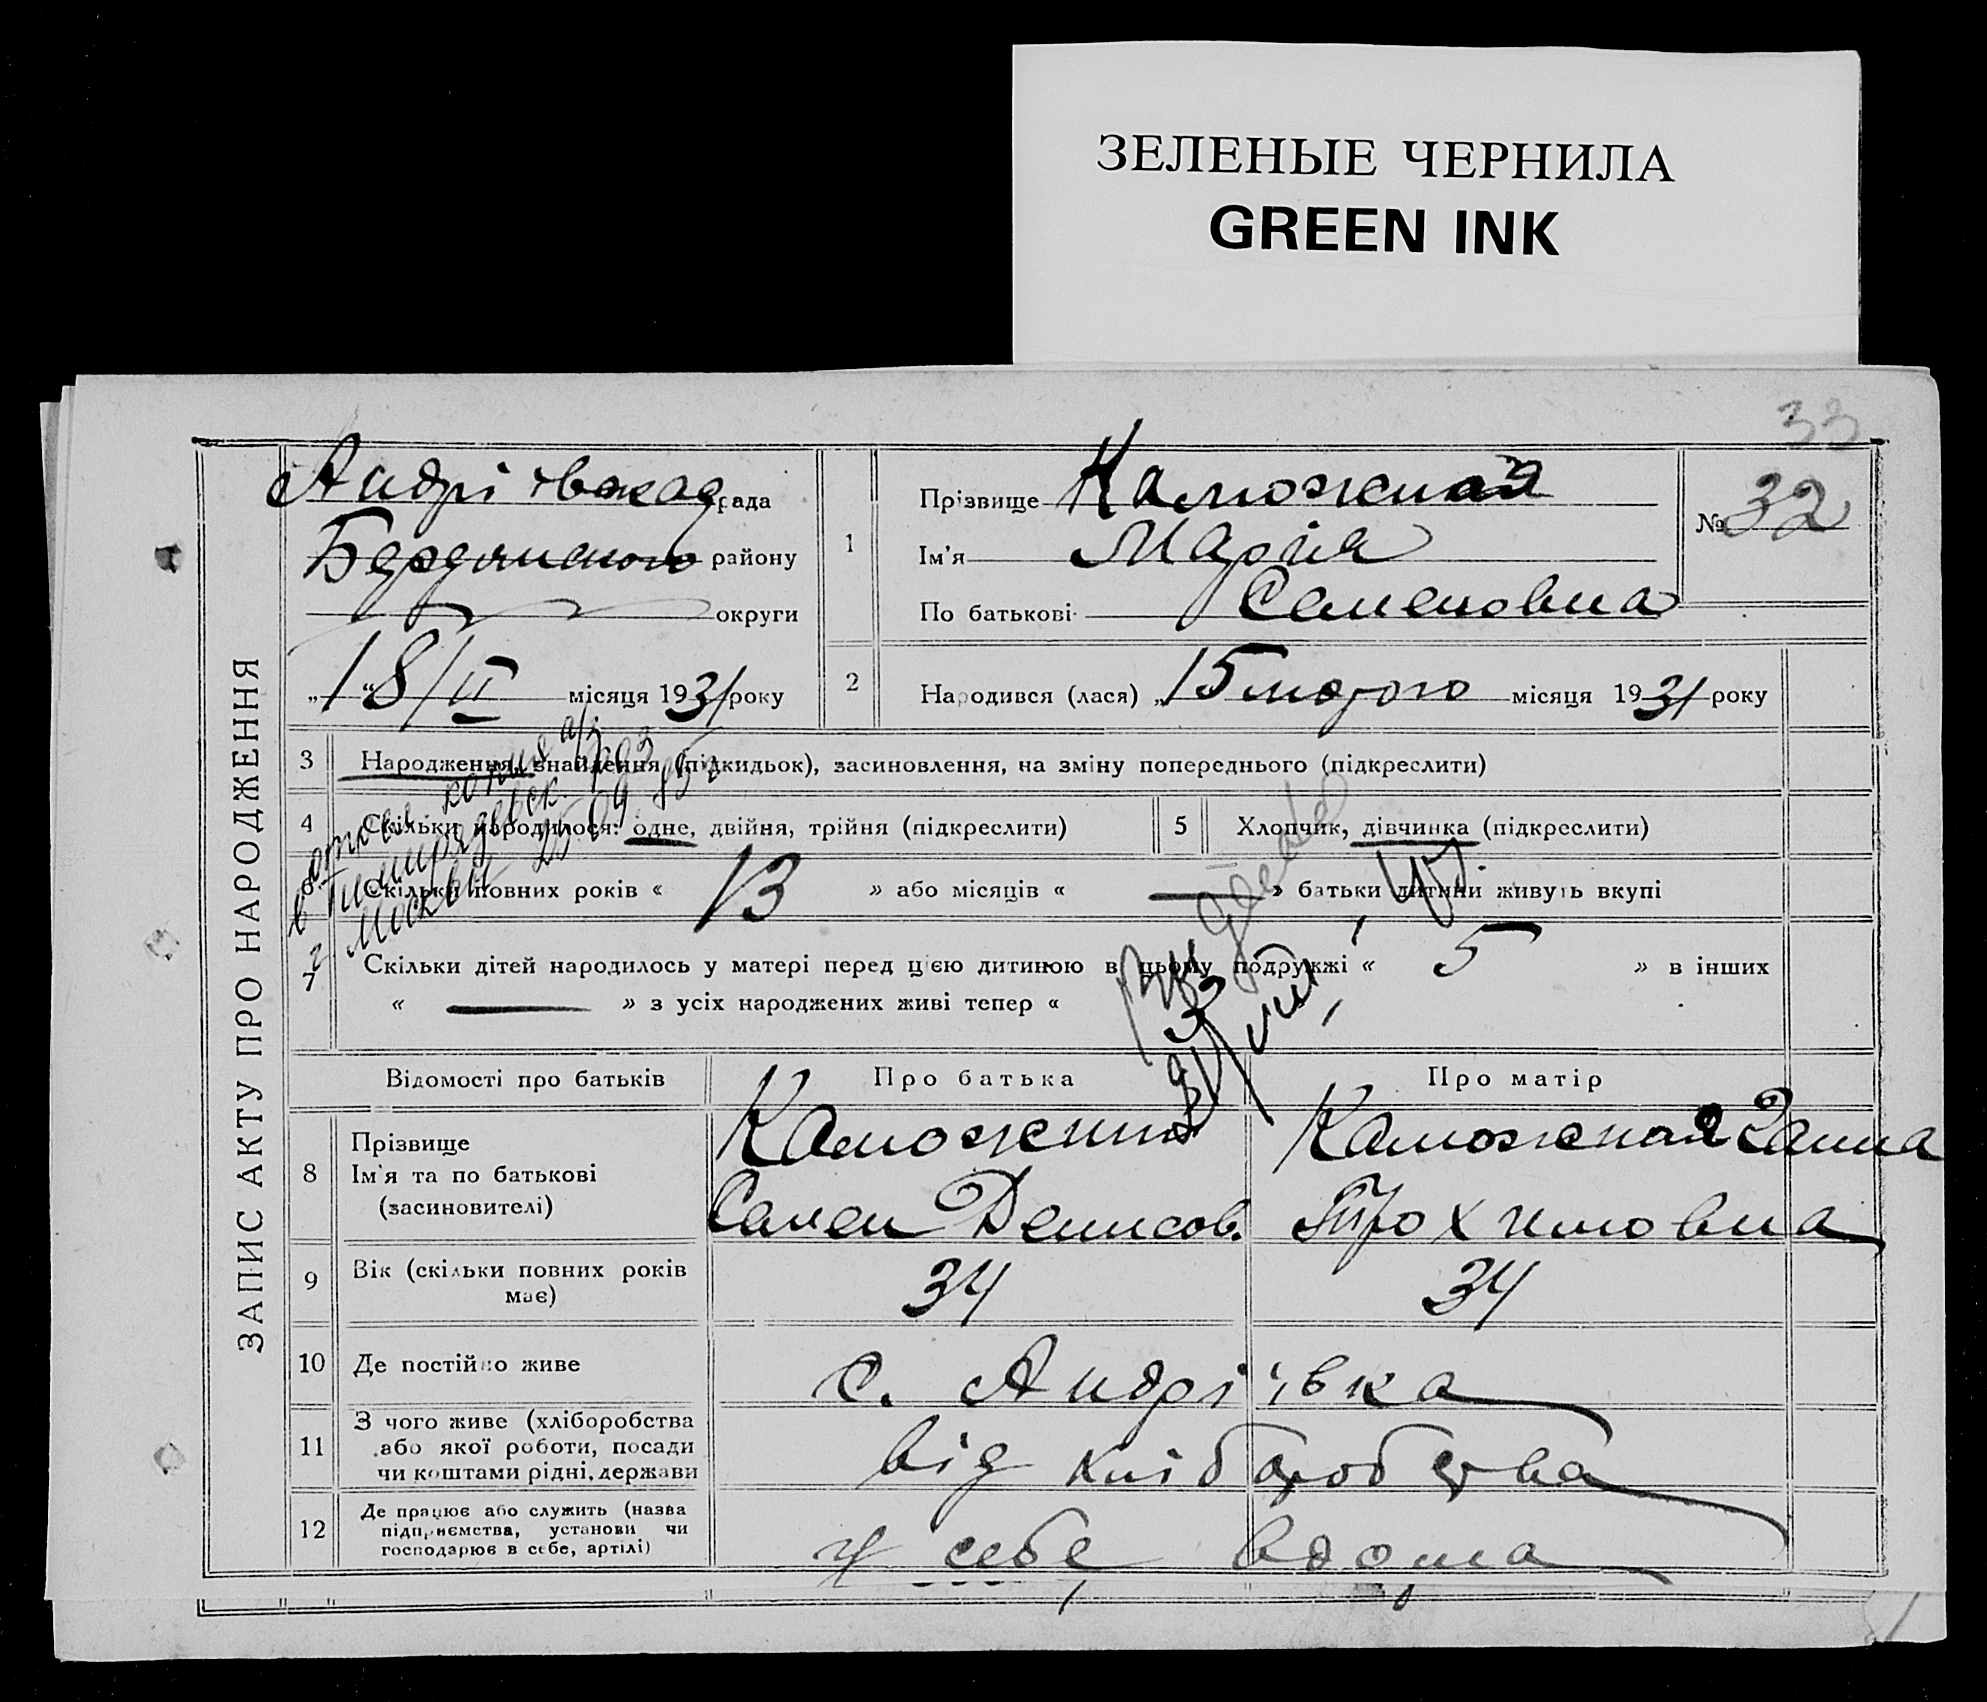 ЗЕЛЕНЫЕ ЧЕРНИЛА
GREEN INK
33
ЗАПИС АКТУ ПРО НАРОДЖЕННЯ
рада
Бердянського району
округи
„18/II місяця 1931 року
1
Прізвище Каможная
Ім'я Марія
По батькові Семеновна
№ 32
2
Народився (лася) „15 лютого місяця 1931 року
3 Народження, знайдення (підкидьок), засиновлення, на зміну попереднього (підкреслити)
4 Скільки народилося: одне, двійня, трійня (підкреслити)
5 Хлопчик, дівчинка (підкреслити)
Скільки повних років « 13 » або місяців « — » батьки дитини живуть вкупі
7 Скільки дітей народилось у матері перед цією дитиною в цьому подружжі « 5 » в інших
« — » з усіх народжених живі тепер «
Відомості про батьків Про батька Про матір
8 Прізвище
Ім'я та по батькові
(засновителі)
Каможний
Семен Денисов.
Каможная Ганна
Трохимовна
9 Вік (скільки повних років має) 34 34
10 Де постійно живе с. Андріївка
11 З чого живе (хліборобства
або якої роботи, посади
чи коштами рідні, держави
від хліборобства
12 Де працює або служить (назва
підприємства, установи чи
господарює в себе, артілі)
у себе вдома